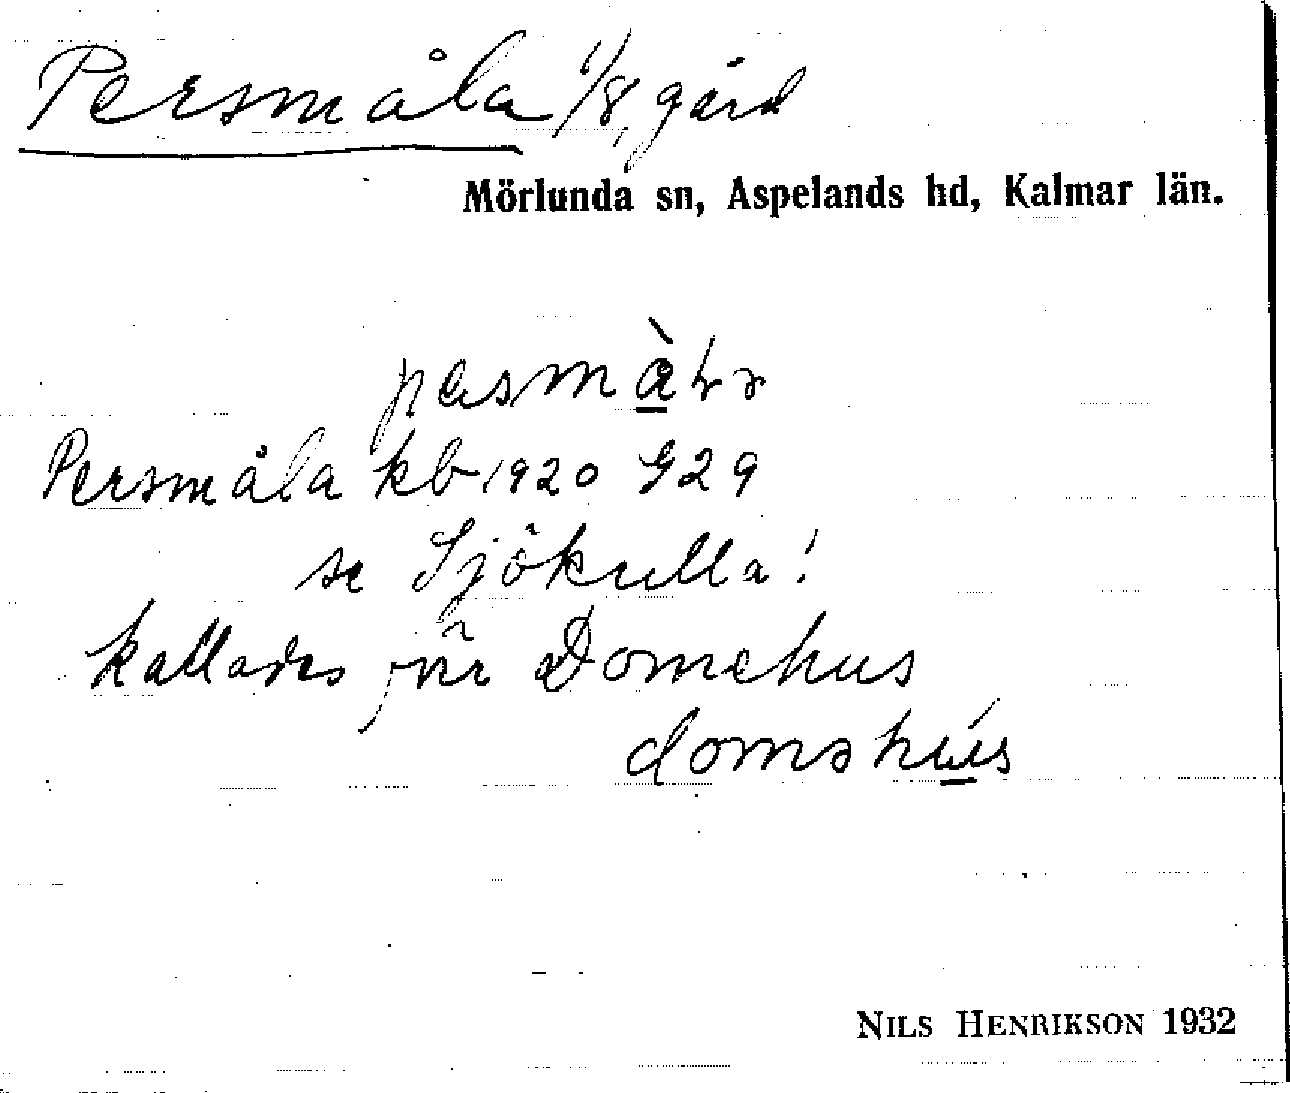 Persmåla 1/8, gård
Mörlunda sn, Aspelands hd, Kalmar län.
Persmåla kb 1920 G29
se Sjökulla!
kallades förr Domehus
NILS HENRIKSON 1932